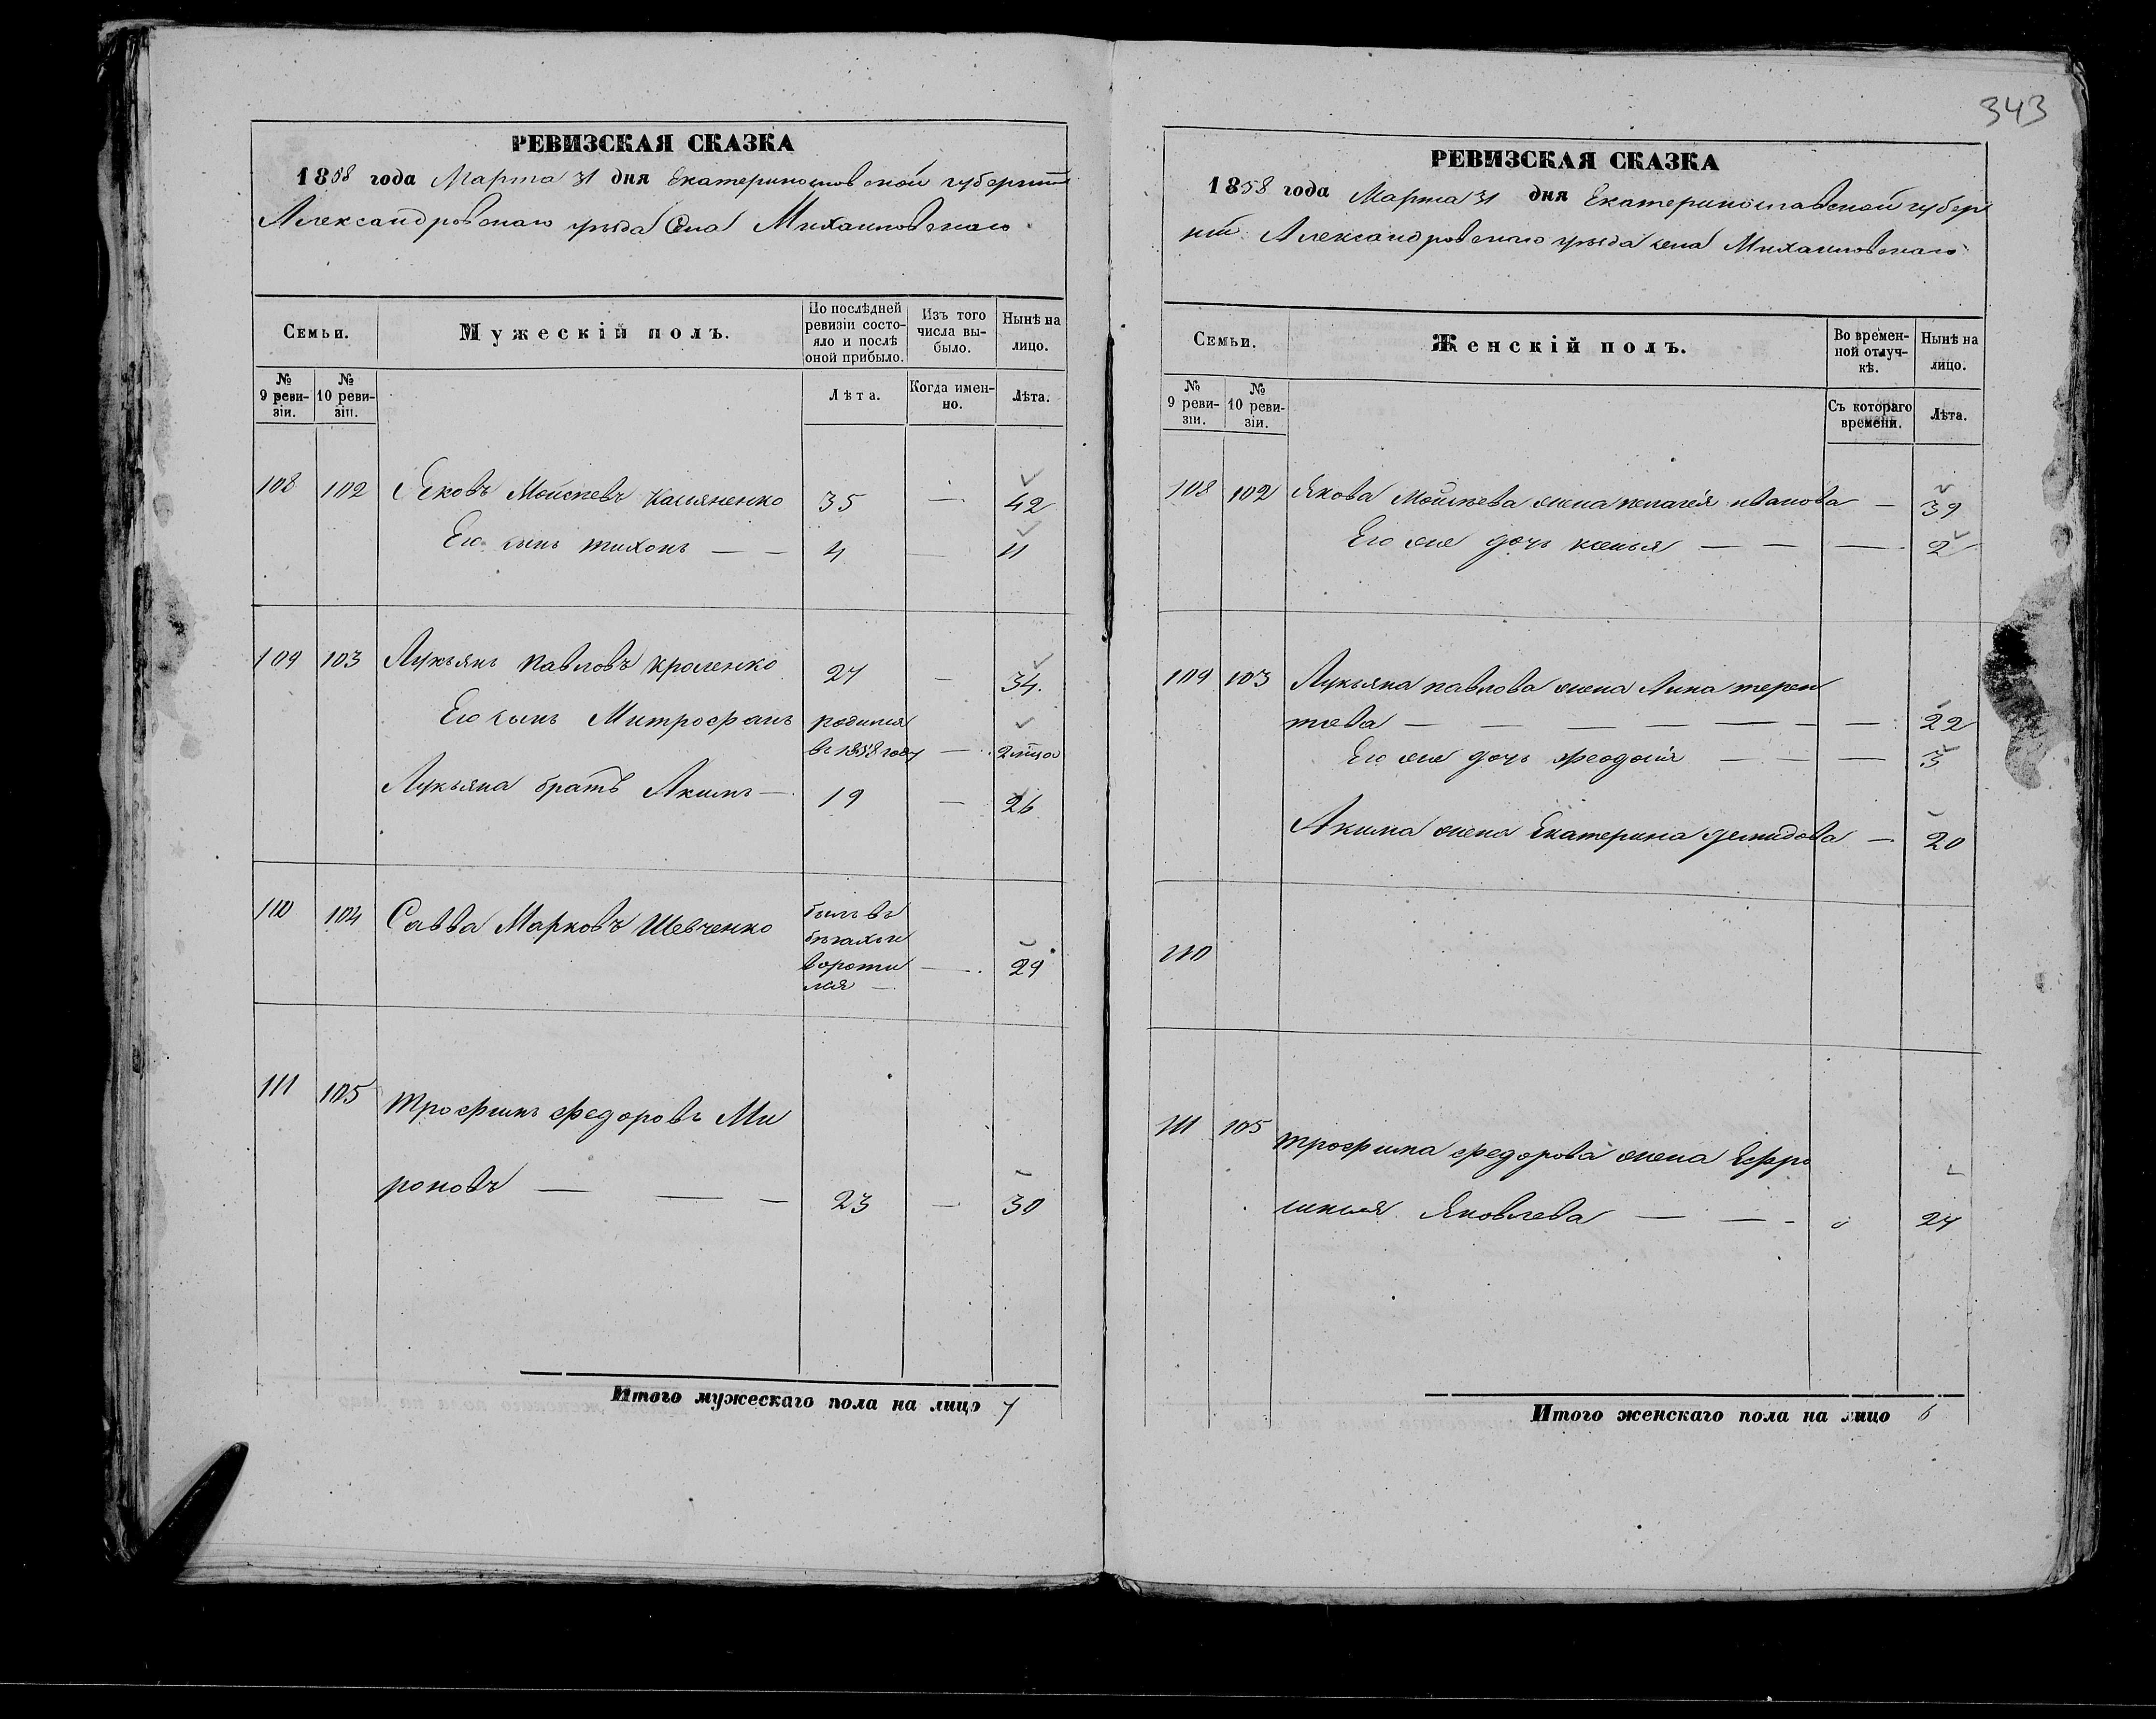 343
РЕВИЗСКАЯ СКАЗКА
1858 года Марта 31 дня Екатеринославской губерніи
Александровскаго уѣзда Села Михайловскаго
Семьи.
Мужескій полъ.
По послѣдней ревизіи состояло и послѣ оной прибыло.
Изъ того числа выбыло.
Нынѣ на лицо.
№ 9 ревизіи.
№ 10 ревизіи.
Лѣта.
Когда именно.
Лѣта.
108 102 Яковъ Мойсѣевъ 35 — 42
Его сынъ Тихонъ — — 4 — 11
109 103 Лукьянъ Павловъ 27 — 34
Его сынъ Митрофанъ родился
въ 1858 году — 2 мѣца
Лукьяна братъ Акимъ — 19 — 26
110 104 Савва Марковъ Шевченко былъ въ
бѣгахъ и
вороти — 29
лся —
111 105 Трофимъ Федоровъ Ми
роновъ — — — 23 — 30
Итого мужескаго пола на лицо 7
РЕВИЗСКАЯ СКАЗКА
1858 года Марта 31 дня Екатеринославской губер
ніи Александровскаго уѣзда села Михайловскаго
Семьи.
Женскій полъ.
Во временной отлучкѣ.
Нынѣ на лицо.
№ 9 ревизіи.
№ 10 ревизіи.
Съ котораго времени.
Лѣта.
108 102 Якова Мойсѣева жена Пелагея Иванова — 39
Его же дочь Ксенья — — — 2
109 103 Лукьяна Павлова жена Анна Терен
тьева — — — — — — 22
Его же дочь Феодосія — — — 3
Акима жена Екатерина Демидова — 20
110
111 105 Трофима Федорова жена Ефро
синья Яковлева — — - 24
Итого женскаго пола на лицо 6